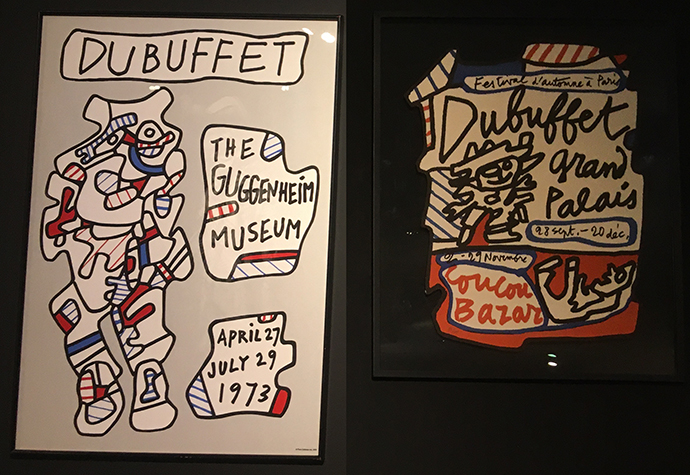 DUBUFFET
THE
GUGGENHEIM
MUSEUM
APRIL 27
JULY 29
1973
Festival d'automne à Paris
Dubuffet
grand
Palais
28 sept. – 20 déc.
Novembre
Coucou
Bazar